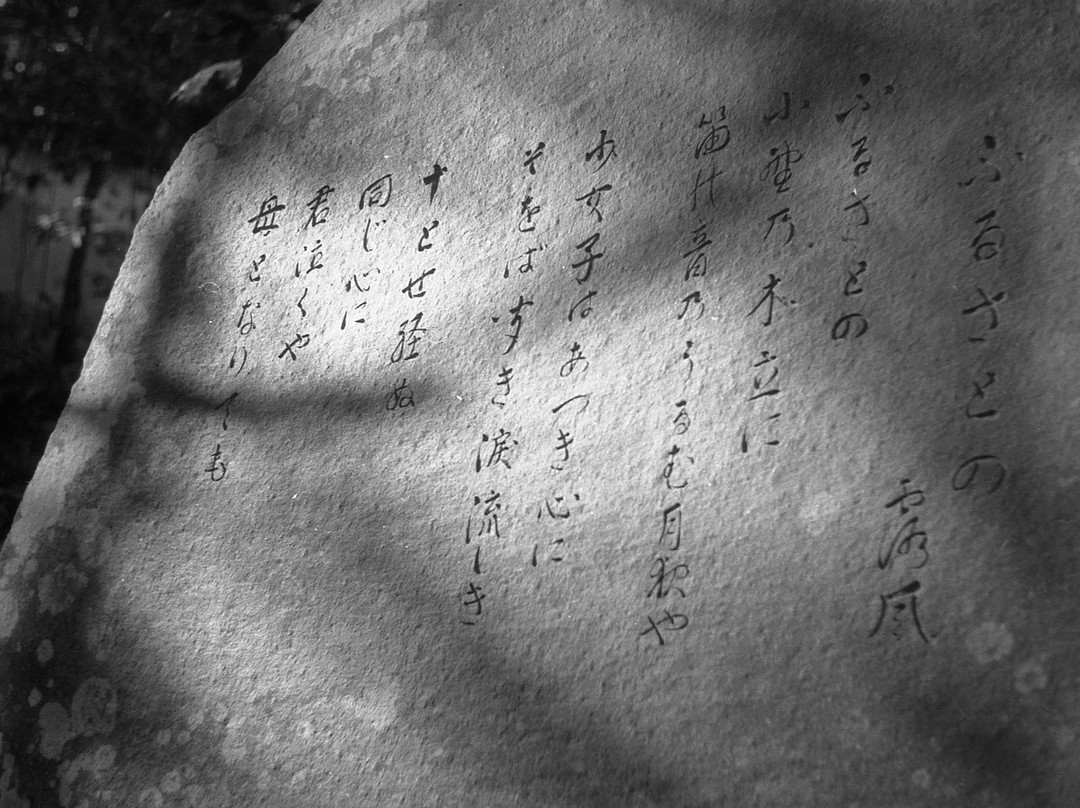 ふるさとの
露風
ふるさとの
小野乃木立に
笛の音乃うるむ月夜や
少女子はあつき心に
そをば聞き涙流しき
十とせ経ぬ
同じ心に
君泣くや
母となりても